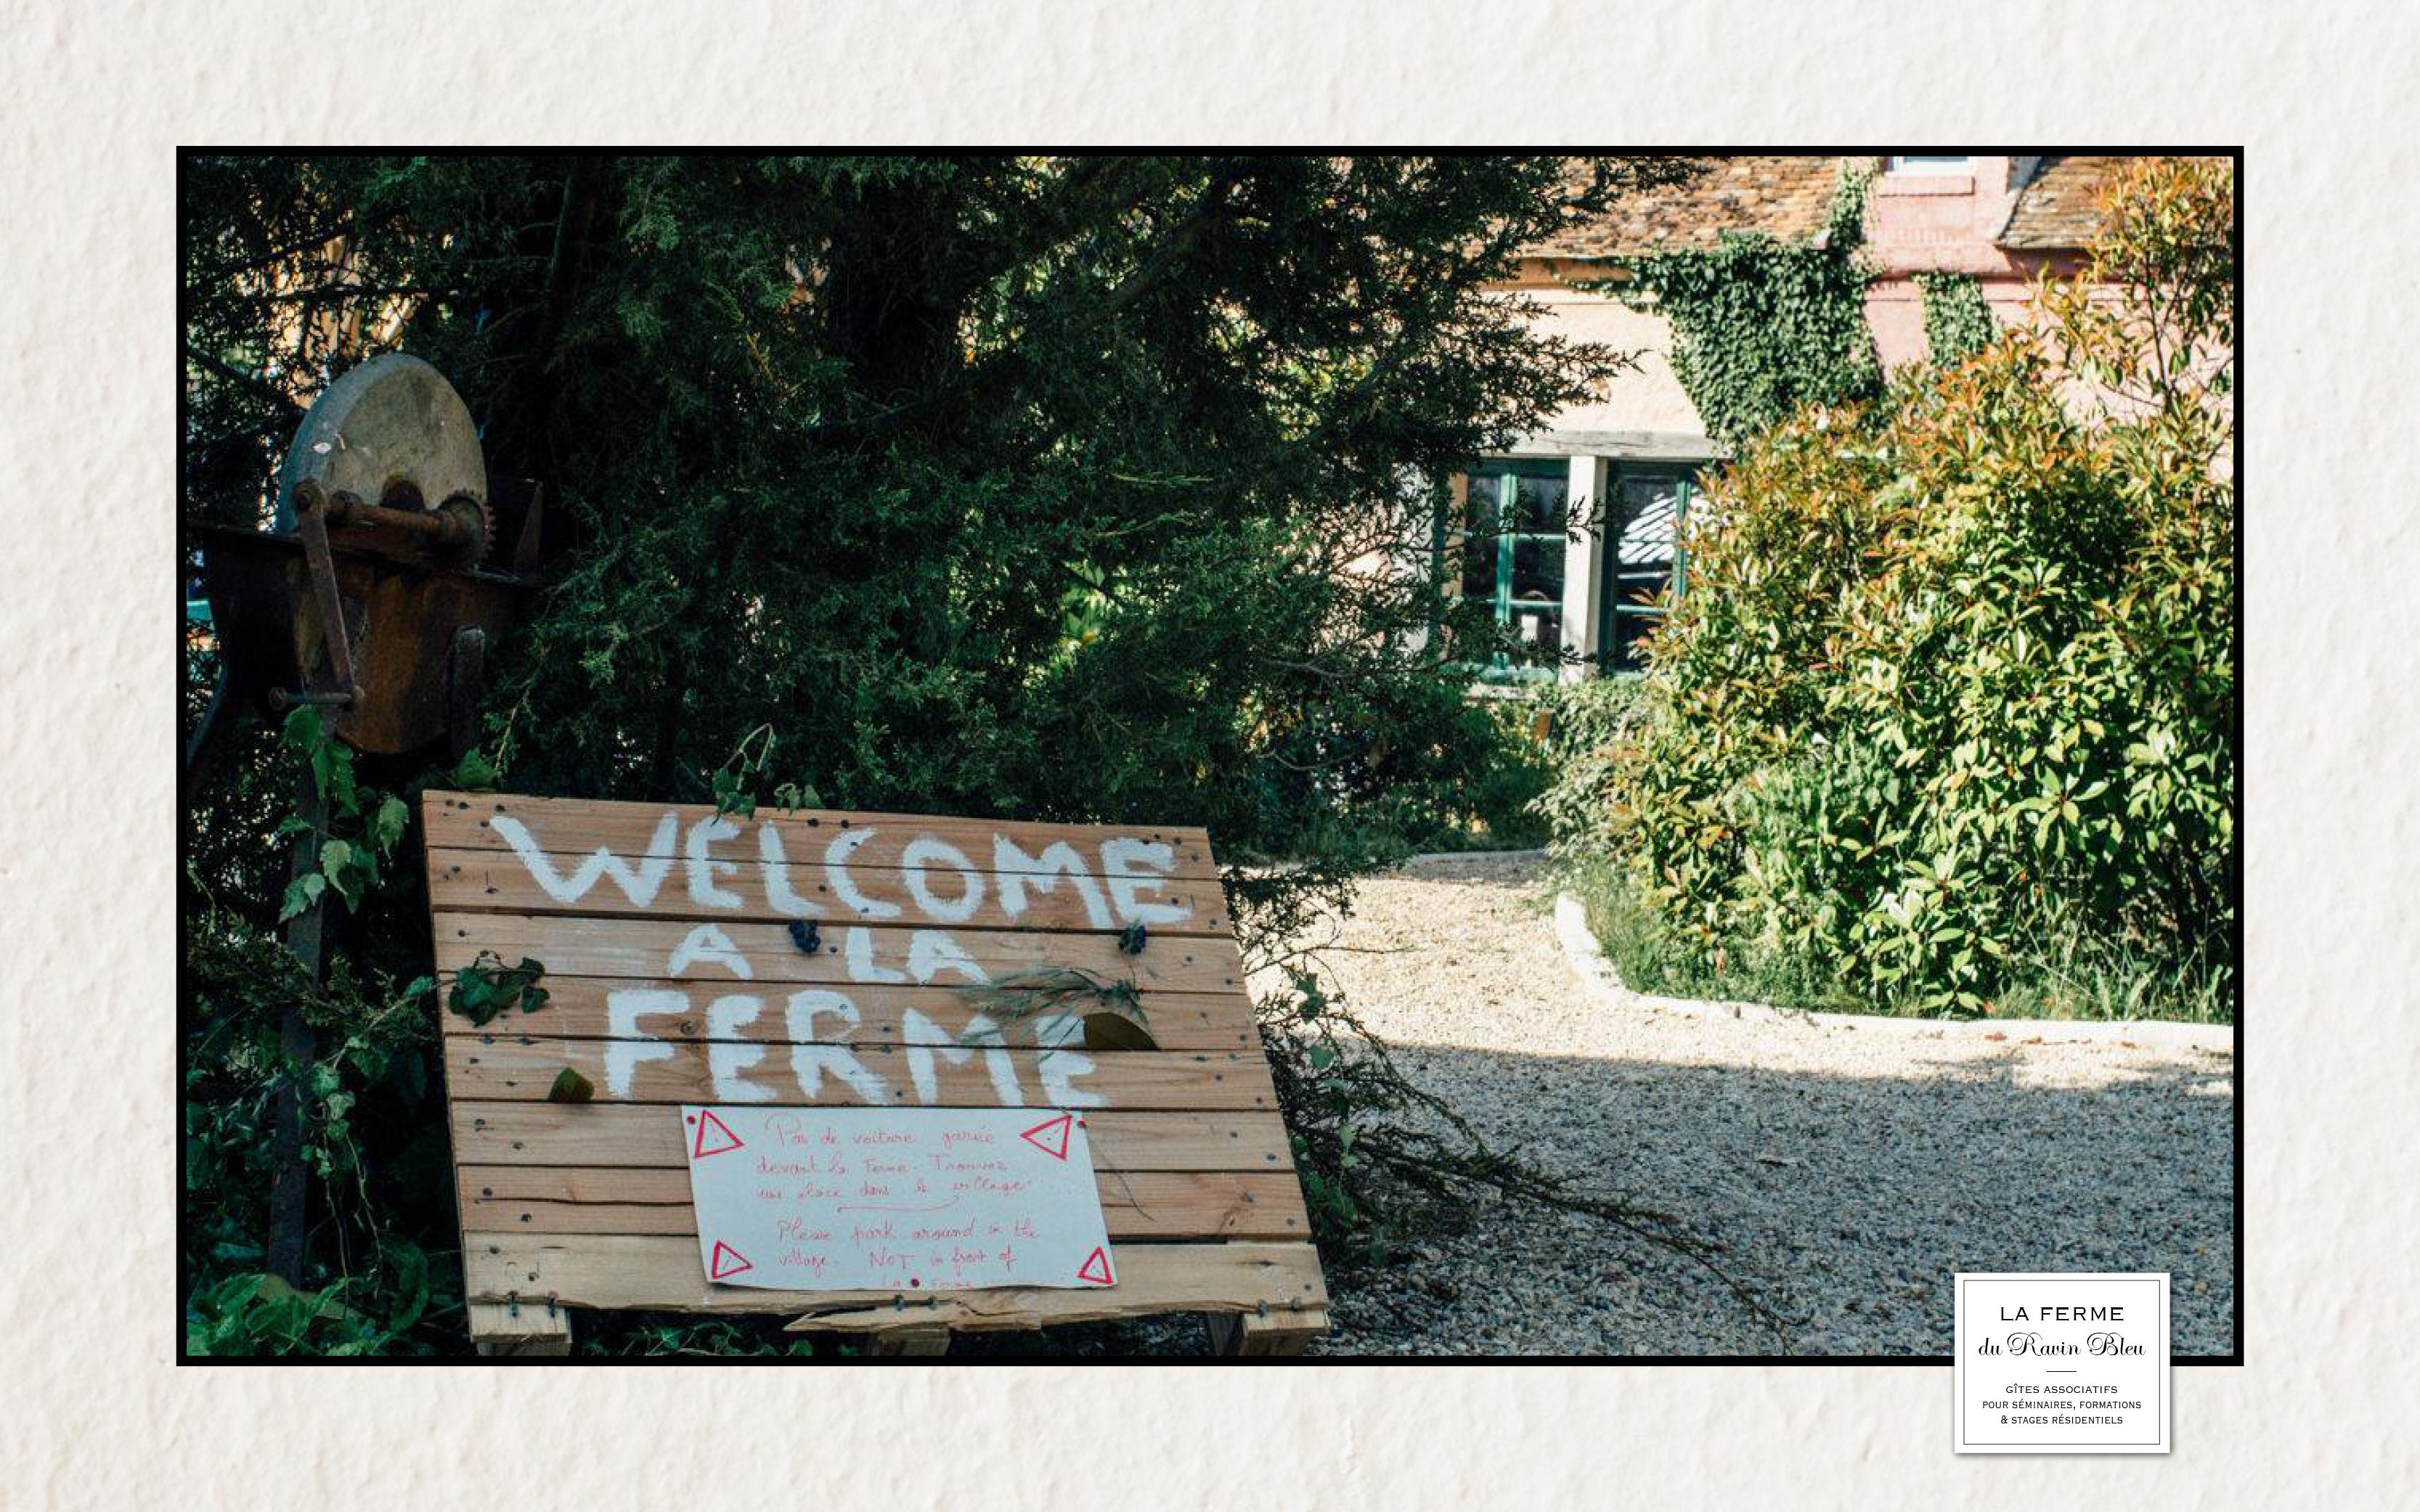 WELCOME
A LA
FERME
Pas de voiture garée
devant la Ferme. Trouvez
une place dans le village
Please park around in the
village. NOT in front of
La Ferme
LA FERME
du Ravin Bleu
GÎTES ASSOCIATIFS
POUR SÉMINAIRES, FORMATIONS
& STAGES RÉSIDENTIELS